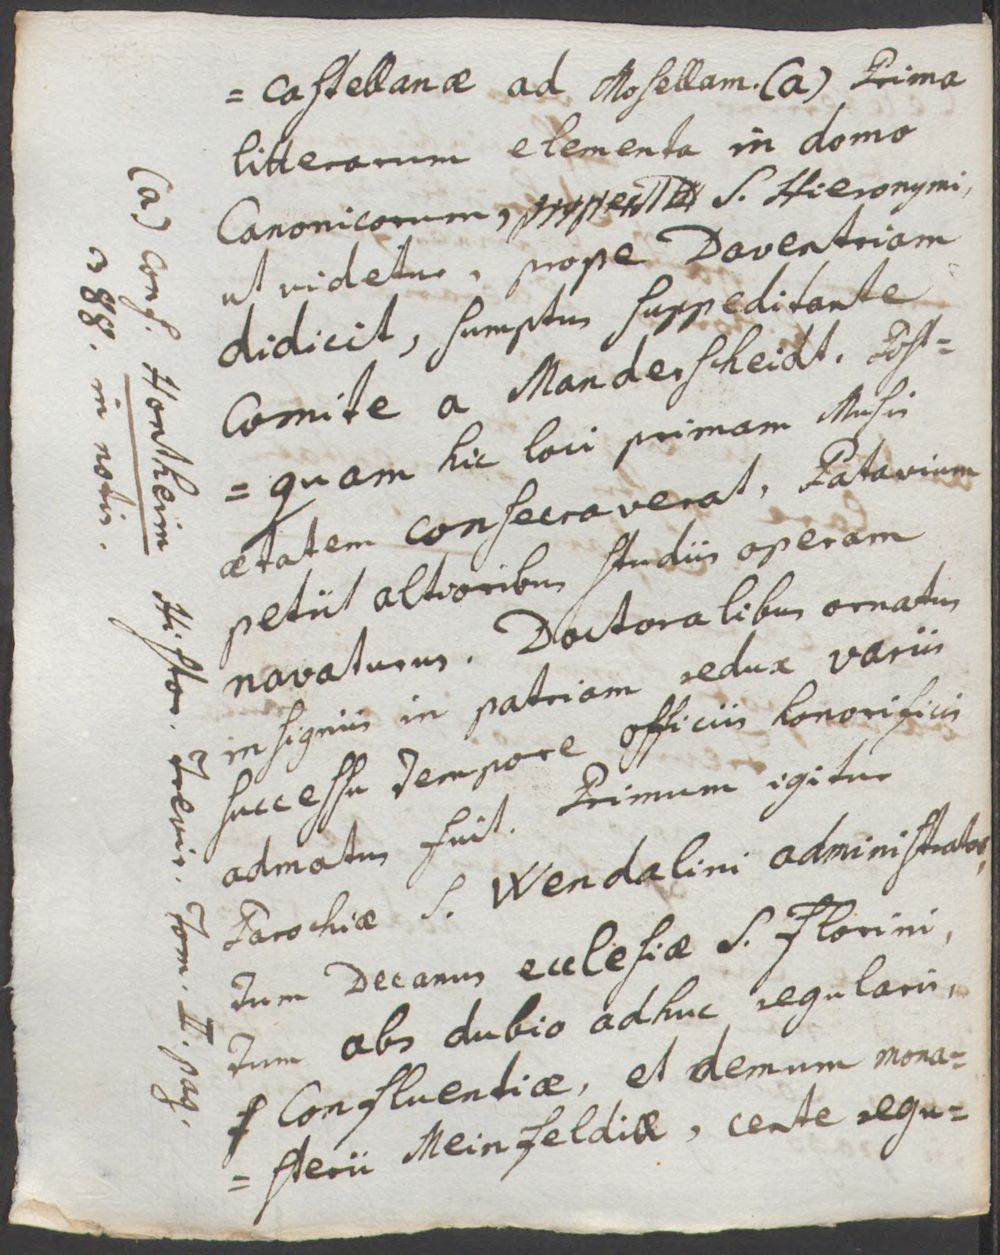 = castellanæ ad Mosellam. (a) Prima
litterarum elementa in domo
Canonicorum, S. Hieronymi,
ut videtur, prope Daventriam
didicit, sumptus suppeditante
Comite a Manderscheidt. Post=
=quam hic loci primam Musis
ætatem consecraverat, Patavium
petiit altioribus studiis operam
navaturus. Doctoralibus ornatus
insigniis in patriam redux variis
successu tempore officiis honorificis
admotus fuit. Primum igitur
Parochiæ S. Wendalini administrator,
tum Decanus ecclesiæ S. Florini,
tum abs dubio adhuc regularis,
Confluentiæ, et demum mona=
=sterii Meinfeldiæ, certe regu=
(a) conf. Hontheim Histor. Trevir. Tom. II. pag.
388. in notis.